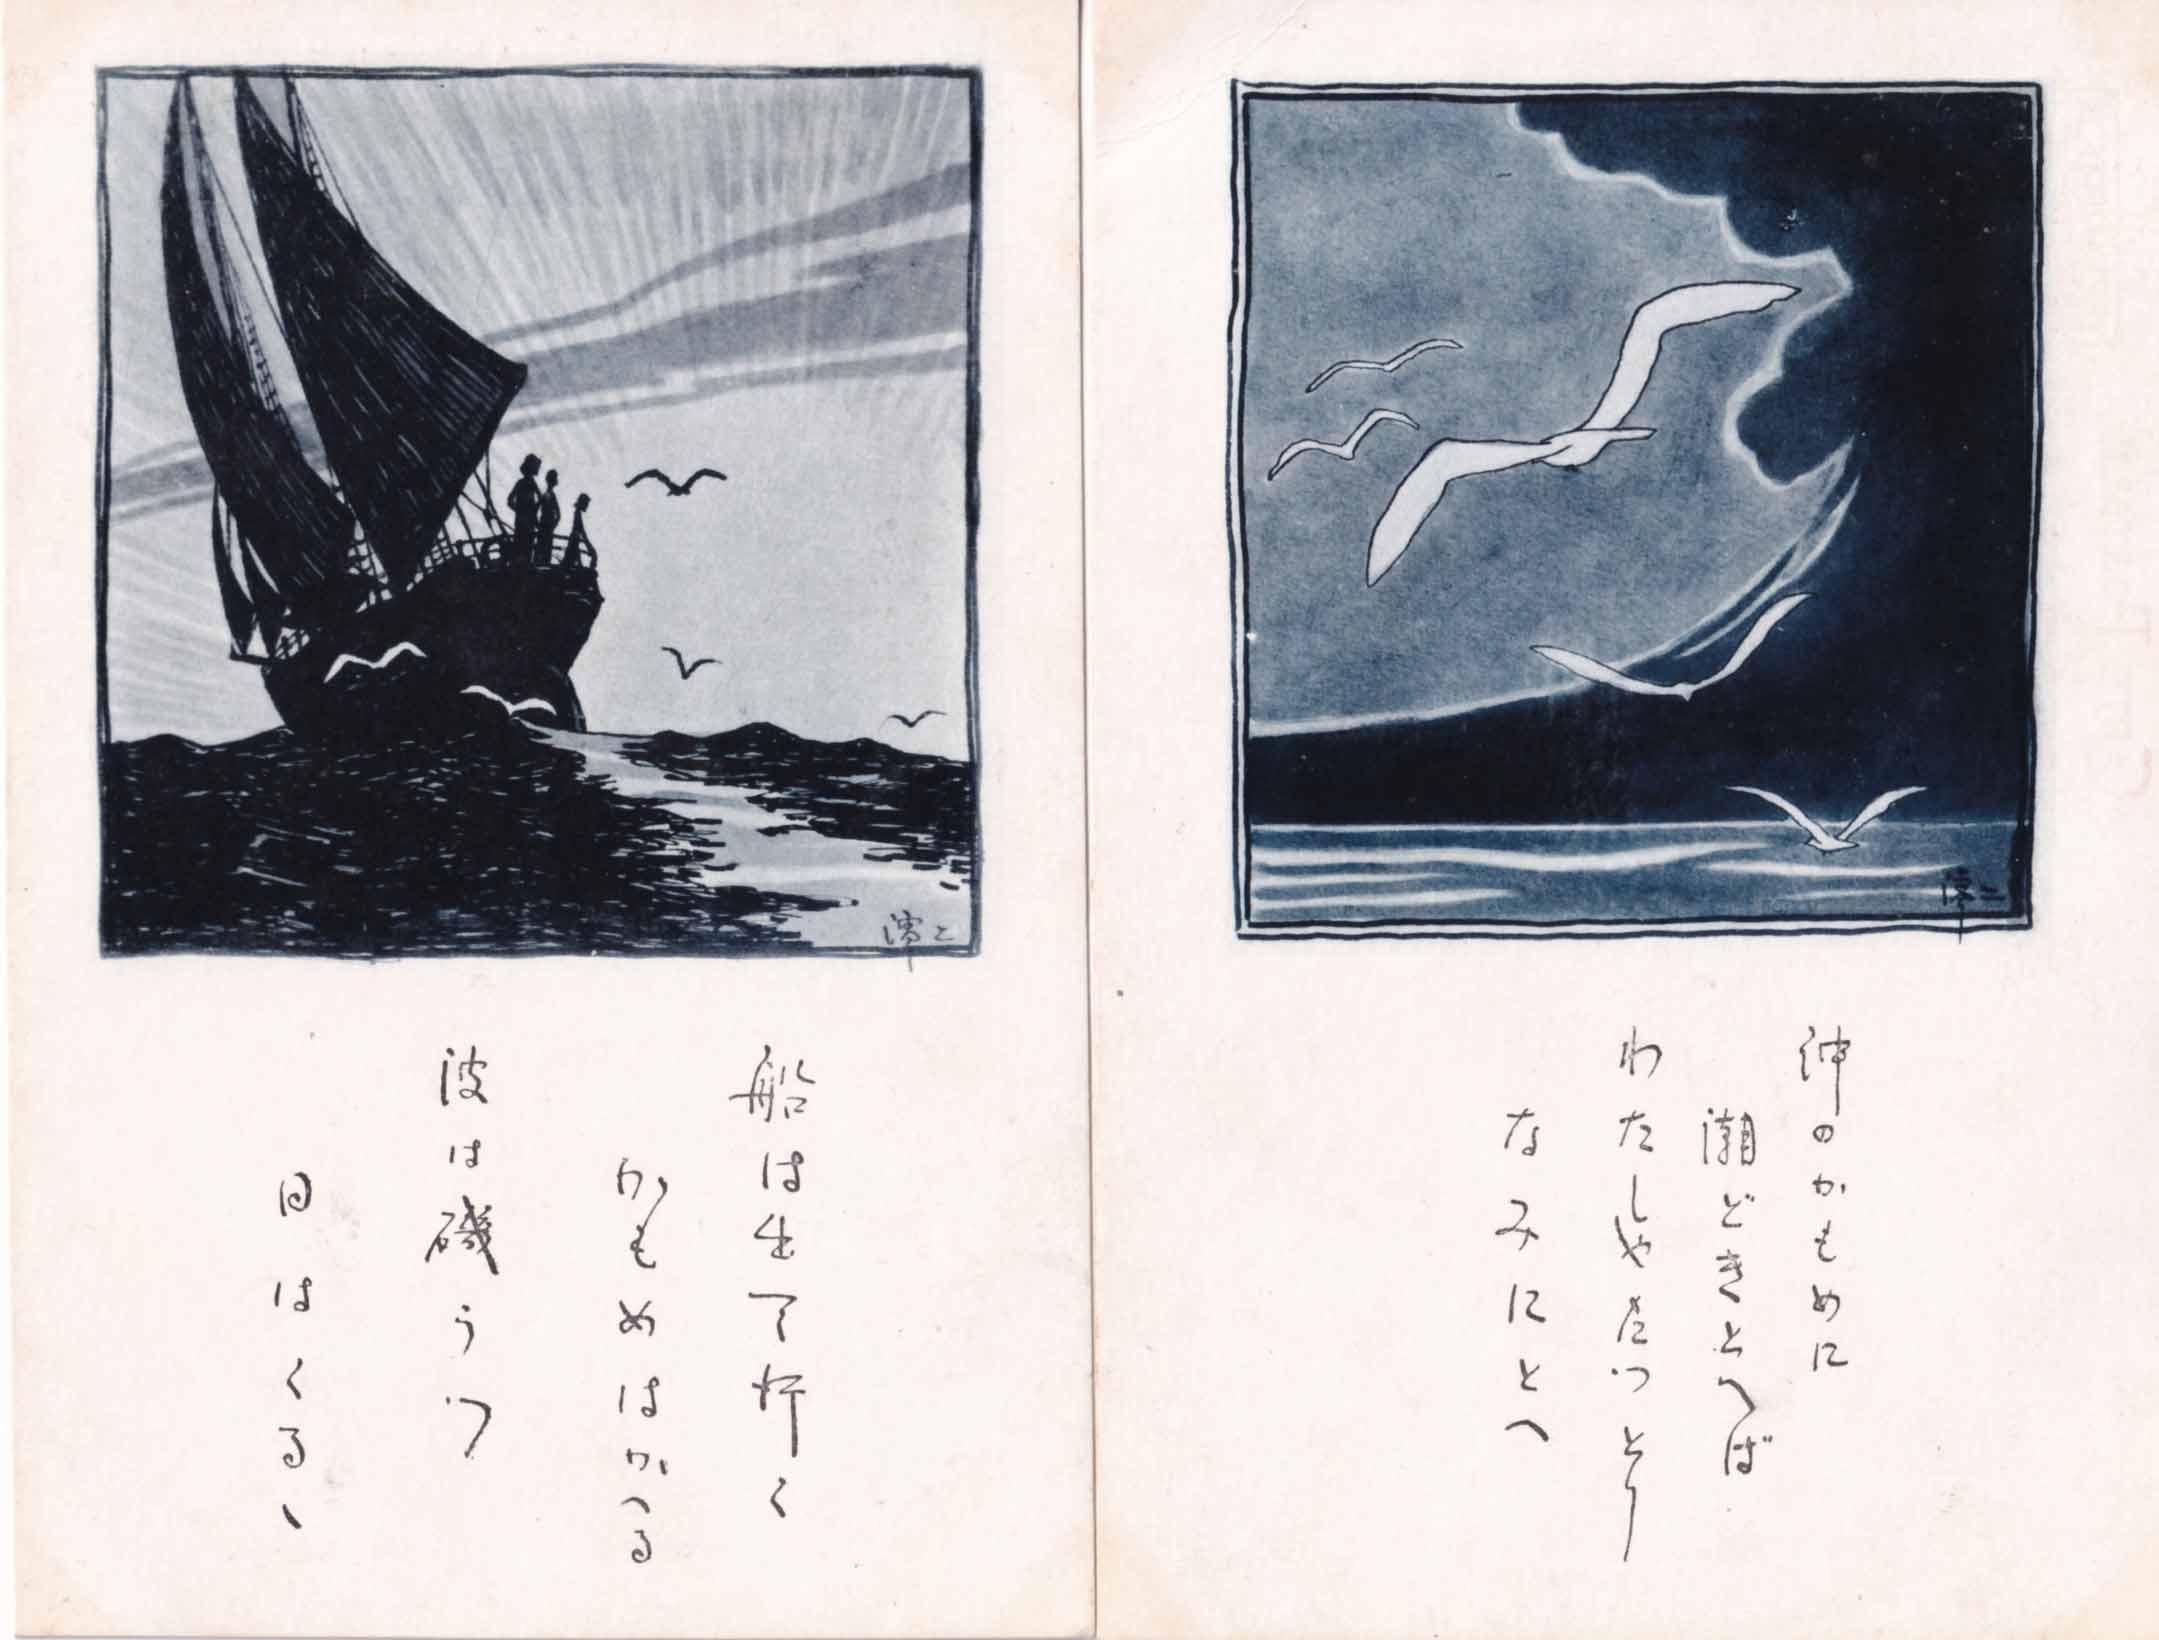 沖のかもめに
潮どきとへば
わたしやたつとり
なみにとへ
船は出て行く
かもめはかへる
波は磯うつ
日はくるヽ